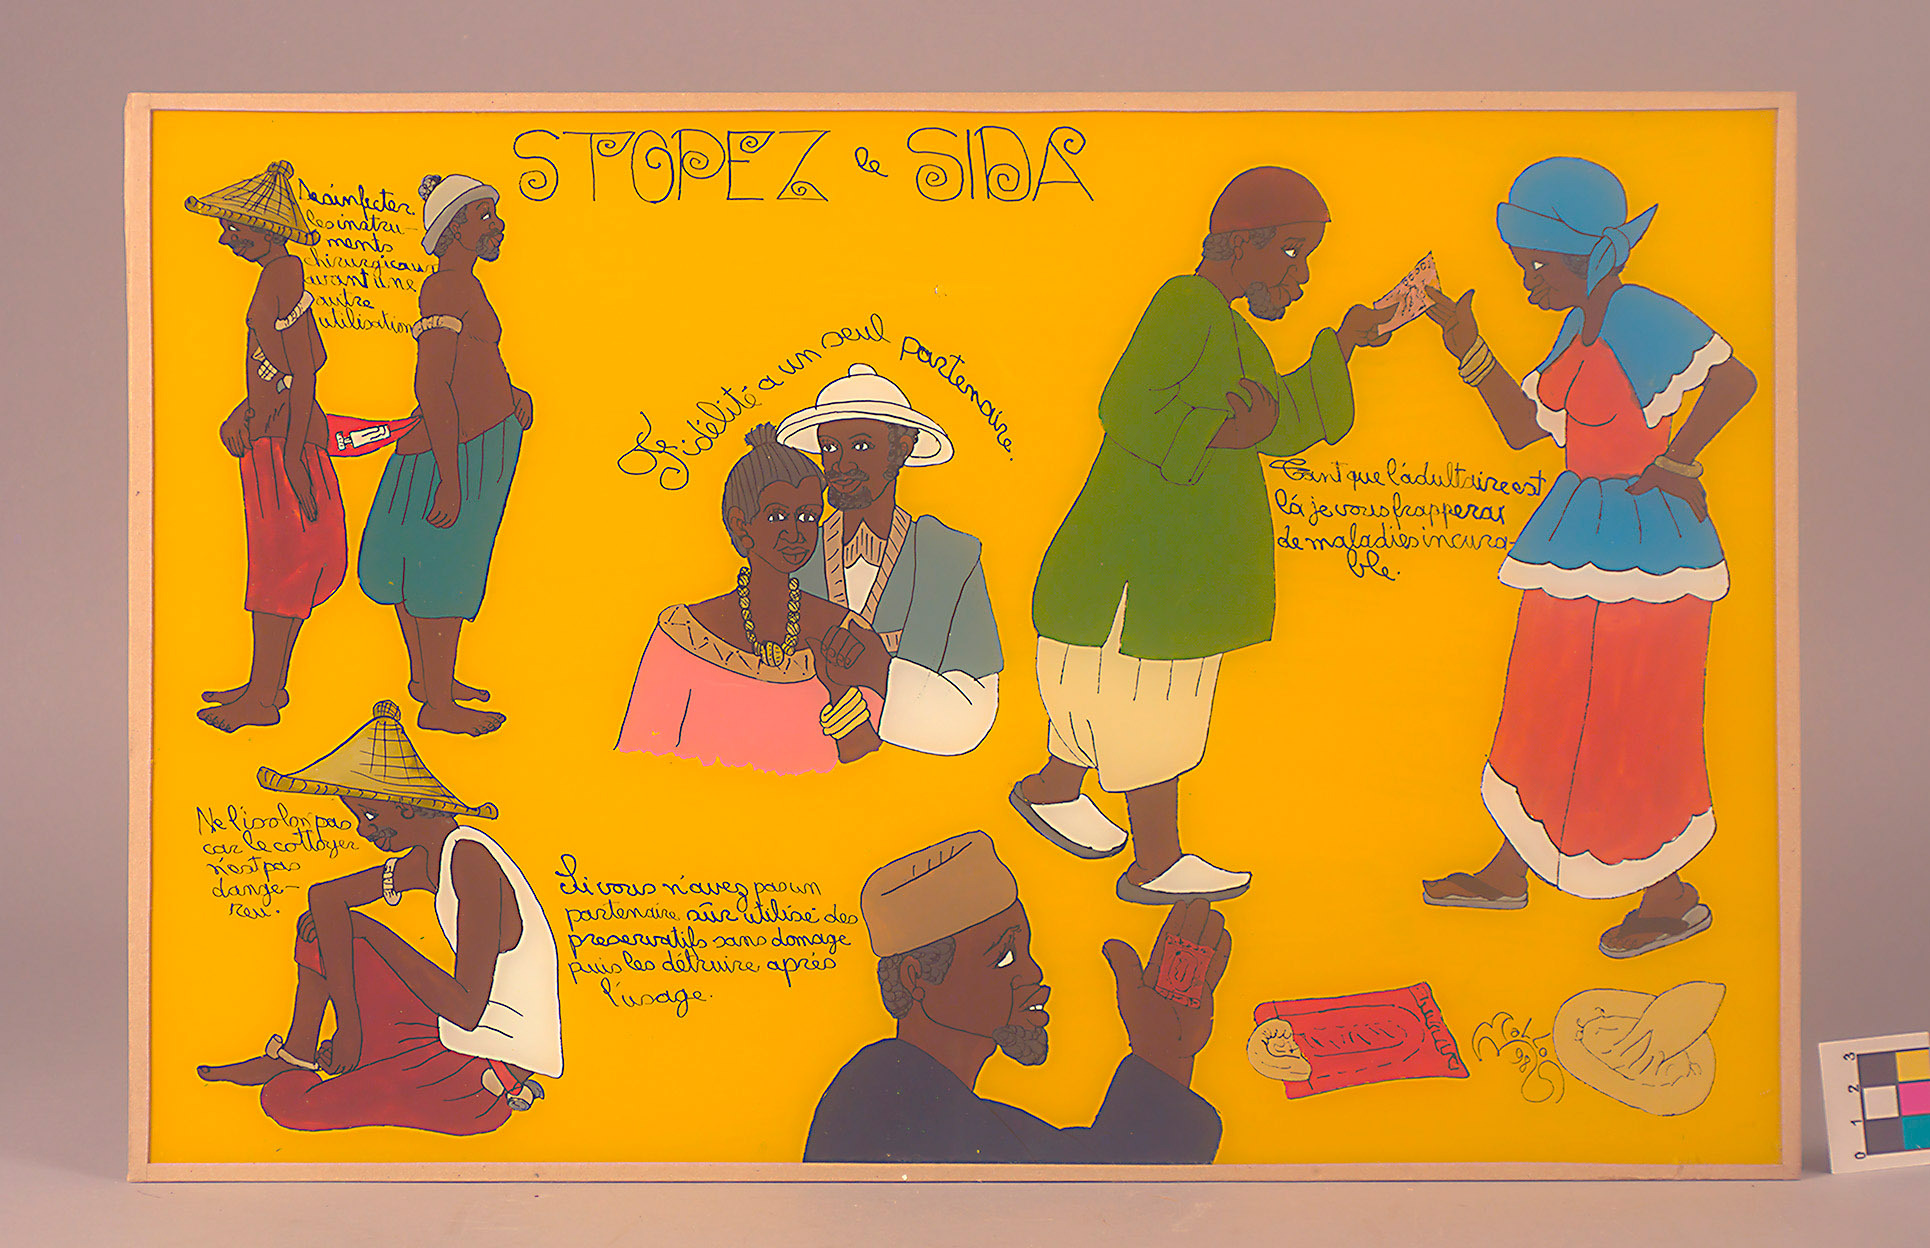 STOPEZ le SIDA
Desinfecter
les instru-
ments
chirurgicaux
avant une
autre
utilisation
Fidélité a un seul partenaire.
Tant que l'adultaire est
là je vous frapperai
de maladies incura-
ble.
Ne l'isolon pas
car le cottoyer
n'est pas
dange-
reu.
Si vous n'avez pas un
partenaire sûr utilisé des
preservatifs sans domage
puis les détruire après
l'usage.
3
2
1
0